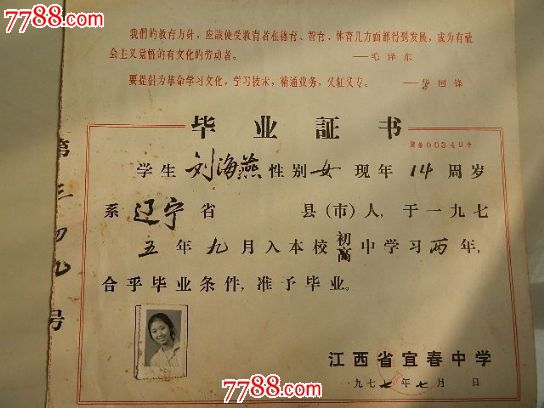 7788.com
我们的教育方针，应该使受教育者在德育、智育、体育几方面都得到发展，成为有社
会主义觉悟的有文化的劳动者。
——毛泽东
要提倡为革命学习文化，学习技术，精通业务，又红又专。——华国锋
毕业証书
00340
学生刘海燕性别女现年14周岁
系辽宁省 县(市)人，于一九七
五年九月入本校初高中学习两年，
合乎毕业条件，准予毕业。
江西省宜春中学
一九七七年七月 日
第 号
7788.com
7788.com